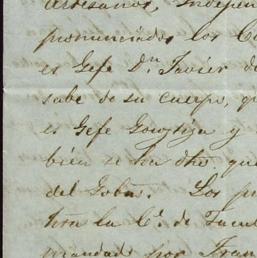 Artesanos, Indepen
pronunciados los C
es Gefe Dn. Javier de
sabe de su cuerpo, q
es Gefe Goastiza y
bien se ha dho. que
del Gobno. Los p
tira la Ca. de Facul
mandad por Fran